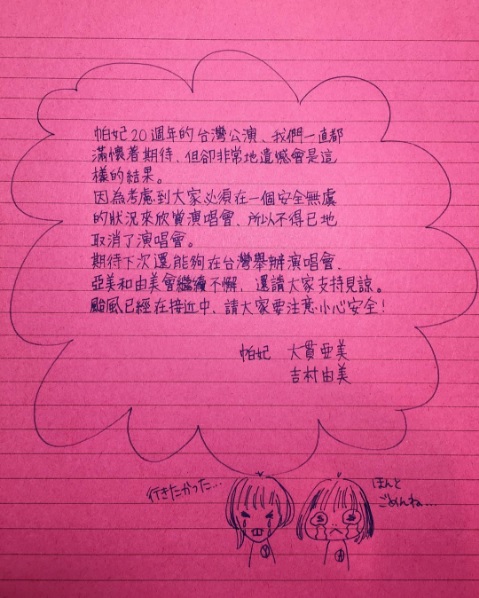 帕妃20週年的台灣公演、我們一直都
滿懷著期待、但卻非常地遺憾會是這
樣的結果。
因為考慮到大家必須在一個安全無虞
的狀況來欣賞演唱會、所以不得已地
取消了演唱會。
期待下次還能夠在台灣舉辦演唱會、
亞美和由美會繼續不懈、還請大家支持見諒。
颱風已經在接近中、請大家要注意小心安全！
帕妃 大貫亜美
吉村由美
行きたかった…
ほんと
ごめんね…